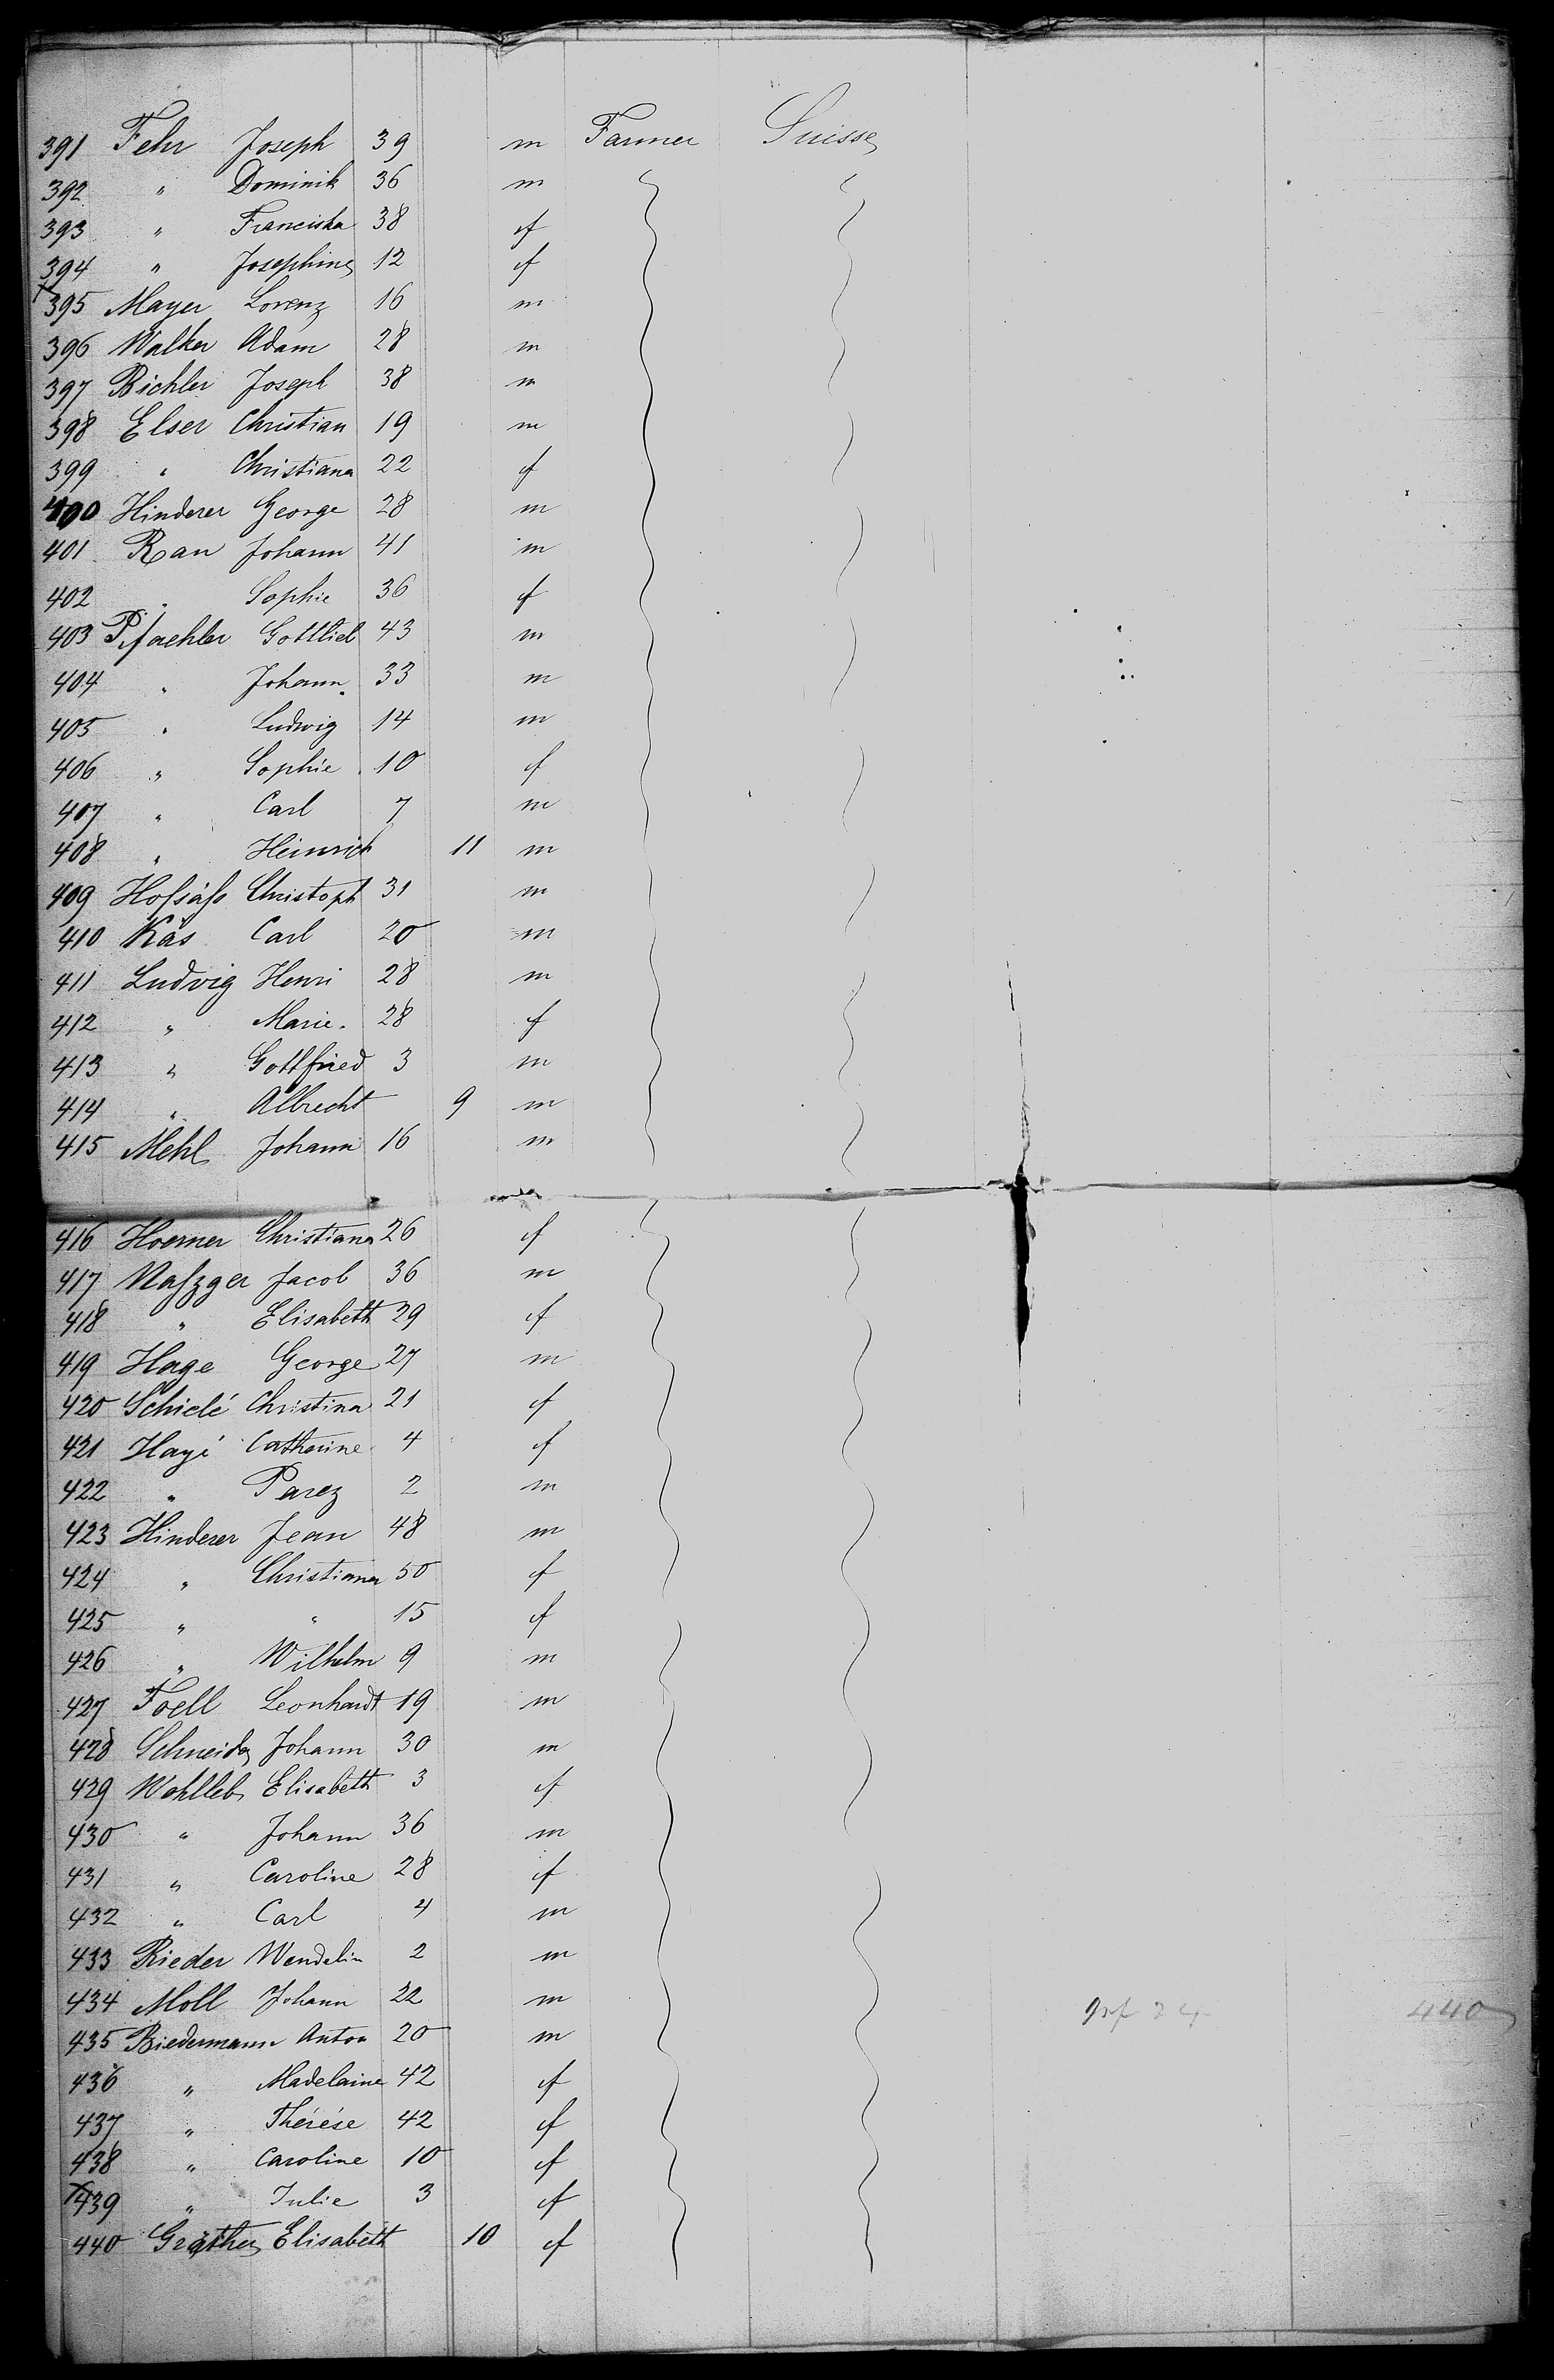 391 Fehr Joseph 39 m Farmer Suisse
392 " Dominik 36 m
393 " Franciska 38 f
394 " Josephine 12 f
395 Mayer Lorenz 16 m
396 Walker Adam 28 m
397 Bichler Joseph 38 m
398 Elser Christian 19 m
399 " Christiana 22 f
400 Hinderer George 28 m
401 Rau Johann 41 m
402 " Sophie 36 f
403 Pfaehler Gottlieb 43 m
404 " Johann 33 m
405 " Ludwig 14 m
406 " Sophie 10 f
407 " Carl 7 m
408 " Heinrich 11 m
409 Hofsäß Christoph 31 m
410 Käs Carl 20 m
411 Ludvig Henri 28 m
412 " Marie 28 f
413 " Gottfried 3 m
414 " Albrecht 9 m
415 Mehl Johann 16 m
416 Hoerner Christiana 26 f
417 Nafzger Jacob 36 m
418 " Elisabeth 29 f
419 Hage George 27 m
420 Schielé Christina 21 f
421 Hagé Catherine 4 f
422 " Parez 2 m
423 Hinderer Jean 48 m
424 " Christiana 50 f
425 " " 15 f
426 " Wilhelm 9 m
427 Foell Leonhardt 19 m
428 Schneider Johann 30 m
429 Wohlleb Elisabeth 3 f
430 " Johann 36 m
431 " Caroline 28 f
432 " Carl 4 m
433 Rieder Wendelin 2 m
434 Moll Johann 22 m
435 Biedermann Anton 20 m 440
436 " Madelaine 42 f
437 " Thérése 42 f
438 " Caroline 10 f
439 " Julie 3 f
440 Gräther Elisabeth 10 f